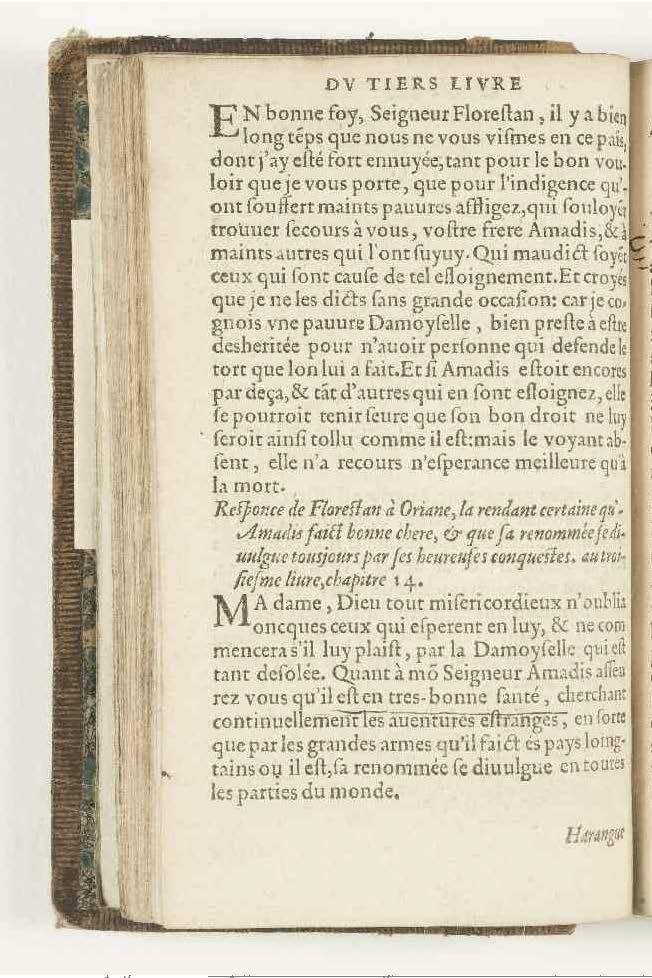 DV TIERS LIVRE
EN bonne foy, Seigneur Floreſtan, il y a bien
long tẽps que nous ne vous viſmes en ce païs,
dont j'ay eſté fort ennuyée, tant pour le bon vou-
loir que je vous porte, que pour l'indigence qu'-
ont ſouffert maints pauures affligez, qui ſouloyẽt
trouuer ſecours à vous, voſtre frere Amadis, & à
maints autres qui l'ont ſuyuy. Qui maudict ſoyẽt
ceux qui ſont cauſe de tel eſloignement. Et croyés
que je ne les dicts ſans grande occaſion: car je co-
gnois vne pauure Damoyſelle, bien preſte à eſtre
desheritée pour n'auoir perſonne qui defende le
tort que lon lui a fait. Et ſi Amadis eſtoit encores
par deça, & tãt d'autres qui en ſont eſloignez, elle
ſe pourroit tenir ſeure que ſon bon droit ne luy
ſeroit ainſi tollu comme il eſt: mais le voyant ab-
ſent, elle n'a recours n'eſperance meilleure qu'à
la mort.
Reſponce de Floreſtan à Oriane, la rendant certaine qu'-
Amadis faict bonne chere, & que ſa renommée ſe di-
uulgue tousjours par ſes heureuſes conqueſtes. au troi-
ſieſme liure, chapitre 14.
MA dame, Dieu tout miſericordieux n'oublia
oncques ceux qui eſperent en luy, & ne com
mencera s'il luy plaiſt, par la Damoyſelle qui eſt
tant deſolée. Quant à mõ Seigneur Amadis aſſeu
rez vous qu'il eſt en tres-bonne ſanté, cherchant
continuellement les auentures eſtranges, en ſorte
que par les grandes armes qu'il faict és pays loing-
tains ou il eſt, ſa renommée ſe diuulgue en toutes
les parties du monde.
Harangue